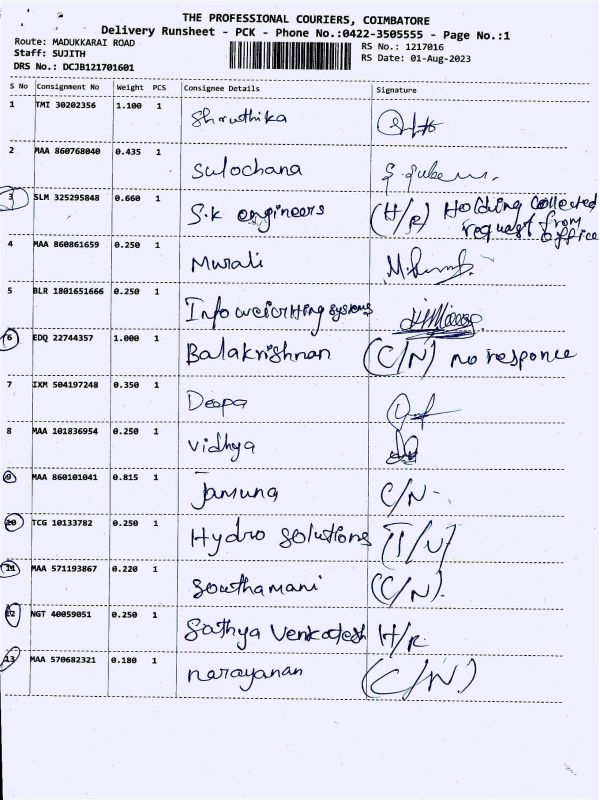 THE PROFESSIONAL COURIERS, COIMBATORE
Delivery Runsheet - PCK - Phone No.:0422-3505555 - Page No.:1
Route: MADUKKARAI ROAD
Staff: SUJITH
DRS No.: DCJB121701601
RS No.: 1217016
RS Date: 01-Aug-2023
S No Consignment No Weight PCS Consignee Details Signature
1 TMI 30202356 1.100 1 Shruthika
2 MAA 860768040 0.435 1 Sulochana
3 SLM 325295848 0.660 1 S.k engineers (H/R) Holding collected
request from
office
4 MAA 860861659 0.250 1 Murali
5 BLR 1801651666 0.250 1 Infoweighting systems
6 EDQ 22744357 1.000 1 Balakrishnan (C/N) no responce
7 IXM 504197248 0.350 1 Deepa
8 MAA 101836954 0.250 1 Vidhya
9 MAA 860101041 0.815 1 Jamuna C/N-
10 TCG 10133782 0.250 1 Hydro solutions
11 MAA 571193867 0.220 1 Southamani (C/N).
12 NGT 40059051 0.250 1 Sathya Venkatesh H/R
13 MAA 570682321 0.180 1 narayanan (C/N)